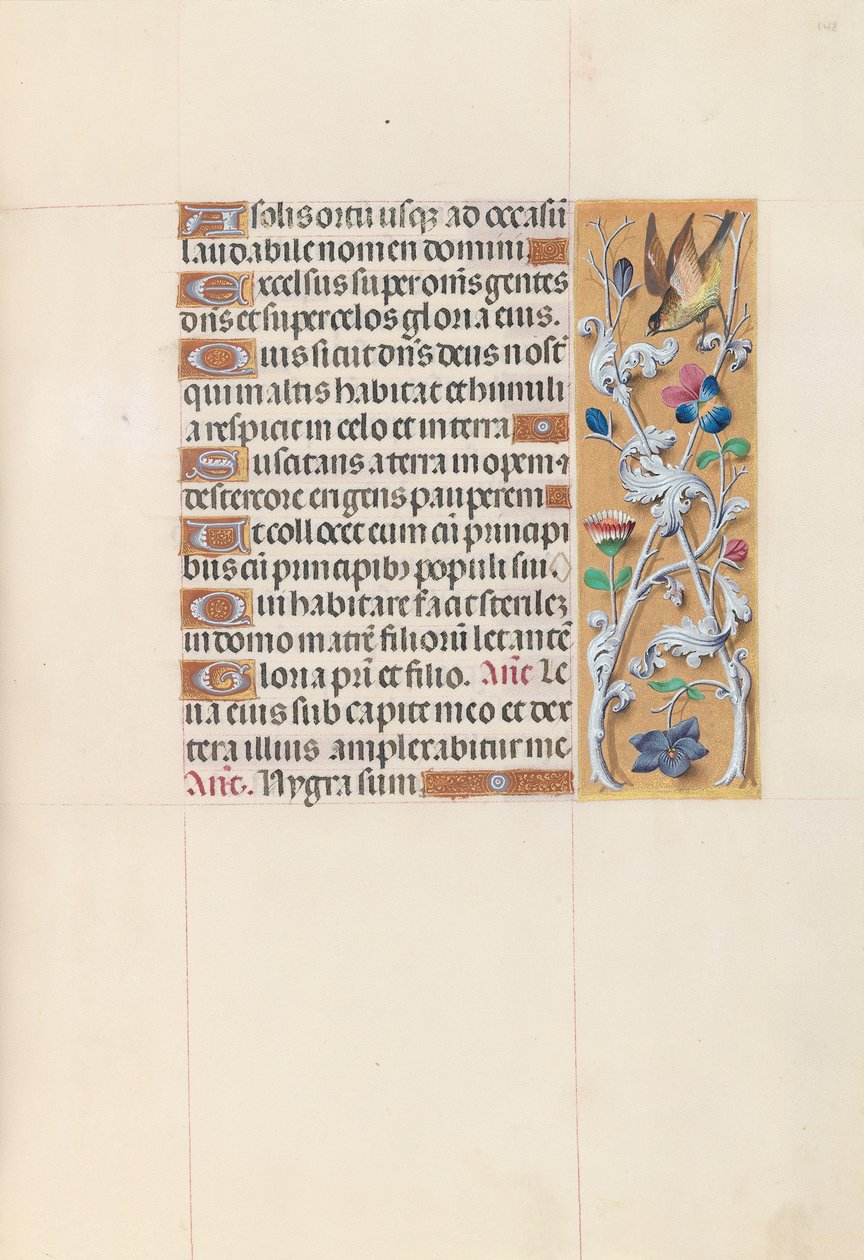 148
A solis ortu usqꝫ ad occasū
laudabile nomen domini
Excelsus super om̄s gentes
dn̄s et super celos gloria eius.
Quis sicut dn̄s deus nost̄
qui in altis habitat et humili
a respicit in celo et in terra
Suscitans a terra inopem ⁊
de stercore erigens pauperem
Ut collocet eum cū principi
bus cū principibꝫ populi sui.
Qui habitare facit sterilēꝫ
in domo matrē filiorū letantē
Gloria pr̄i et filio. An̄e Le
ua eius sub capite meo et dex
tera illius amplexabitur me
An̄t. Nygra sum